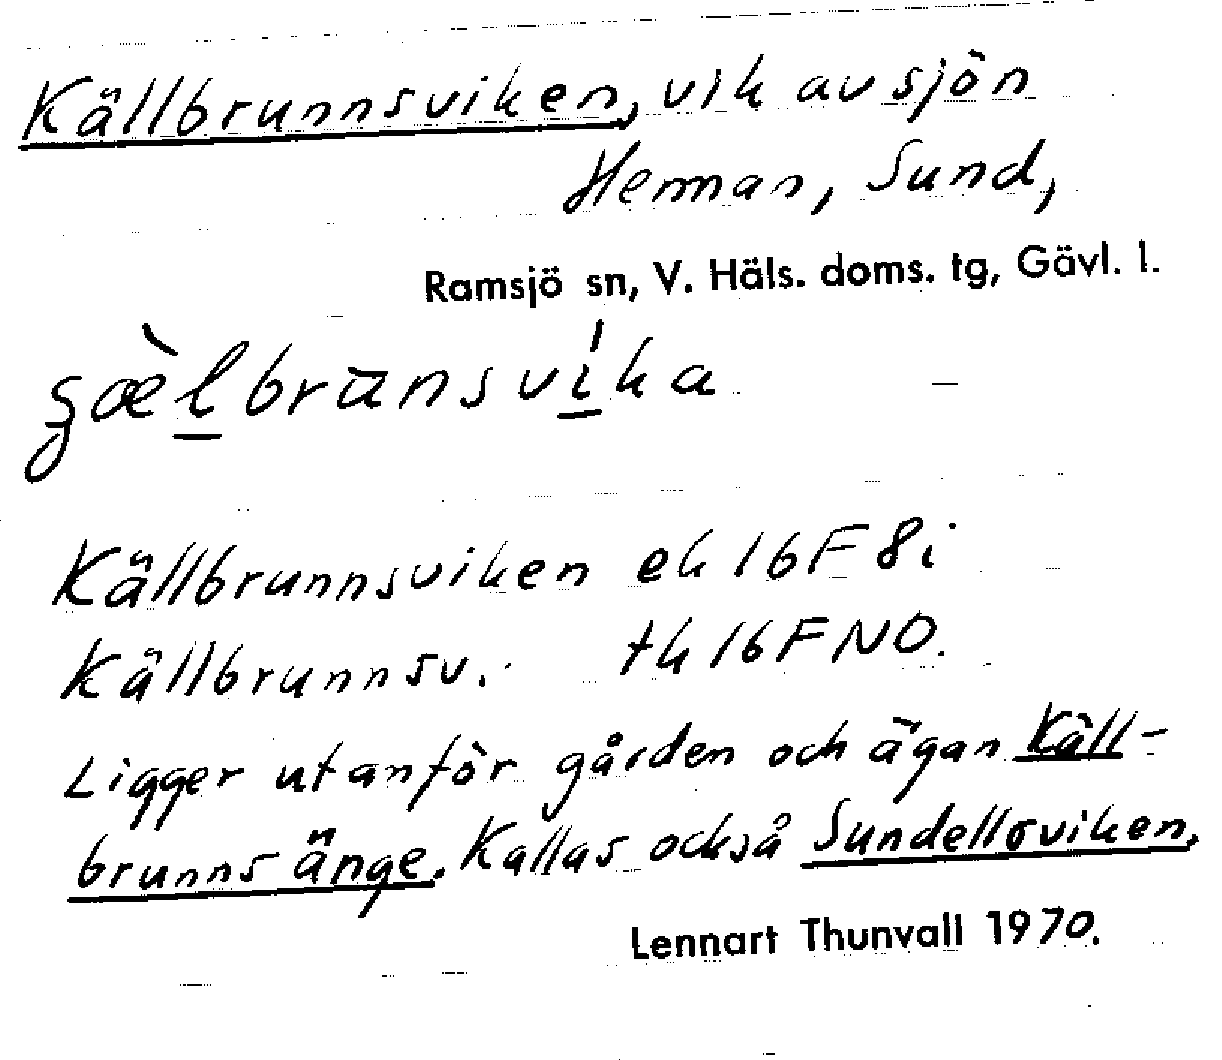 Källbrunnsviken, vik av sjön
Hennan, Sund,
Ramsjö sn, V. Häls. doms. tg, Gävl. l.
Källbrunnsviken ek 16F 8i
Källbrunnsv. tk 16F NO.
Ligger utanför gården och ägan Käll-
brunnsänge. Kallas också Sundellsviken.
Lennart Thunvall 1970.